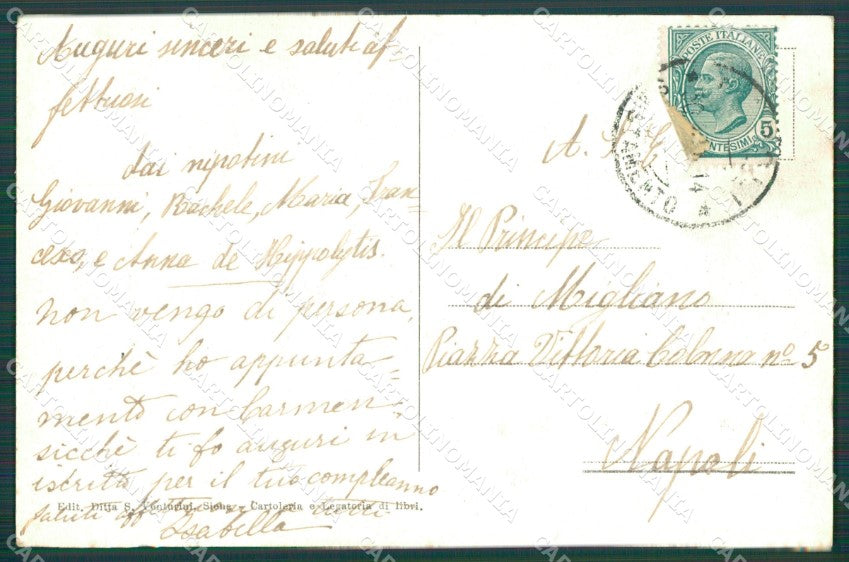 Auguri sinceri e saluti af-
fettuosi
dai nipotini
Giovanni, Rachele, Maria, Fran-
cesco, e Anna de Hippolytis.
Non vengo di persona,
perchè ho appunta-
mento con Carmen,
sicchè ti fo auguri in
iscritto per il tuo compleanno
saluti aff
Isabella
Edit. Ditta S. Venturini, Siena - Cartoleria e Legatoria di libri.
POSTE ITALIANE
5
CENTESIMI
14
A. S. E.
Il Principe
di Migliano
Piazza Vittoria Colonna nº 5
Napoli
CARTOLINOMANIA